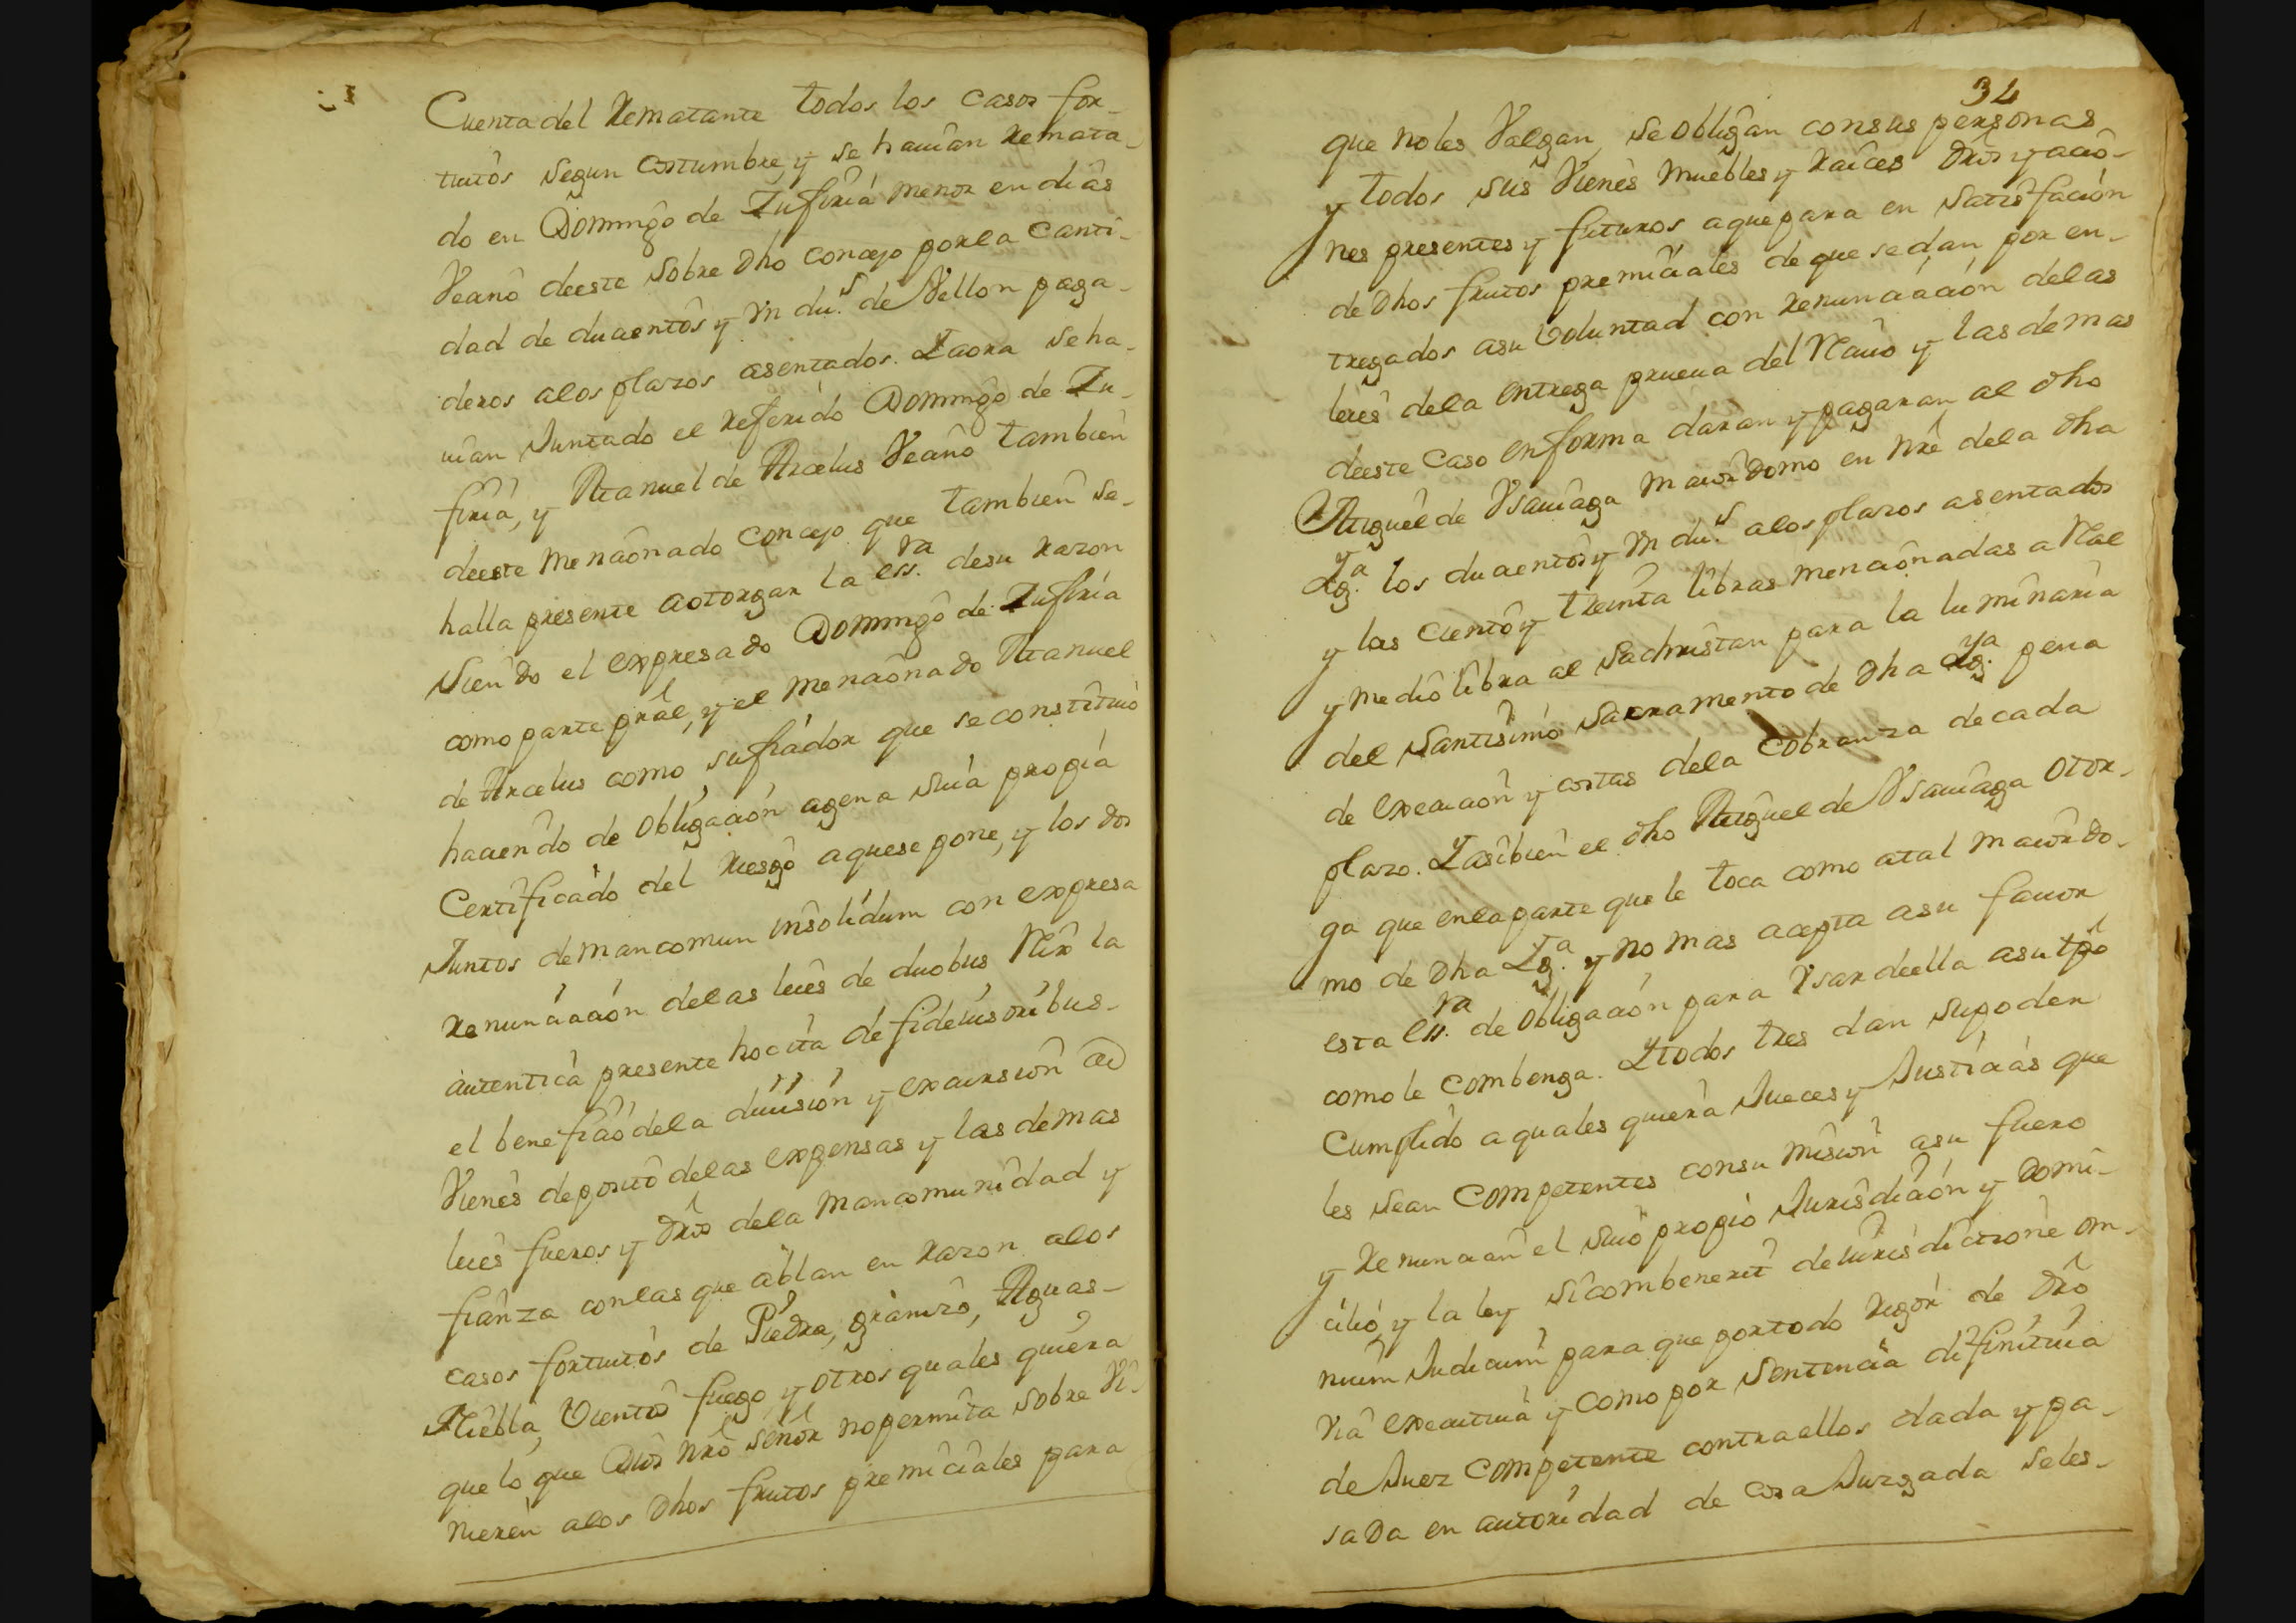 Cuenta del Rematante todos los casos for-
tuitos segun costumbre, y se hauian remata-
do en Domingo de Zufiria menor en dias
Veano deeste sobre dho concejo por la canti-
dad de ducientos y un du.s de Vellon paga-
deros alos plazos asentados. Yaora se ha-
uian Juntado el referido Domingo de Zu-
firia, y Manuel de Arcelus Veano tambien
deeste mencionado concejo que tambien se
halla presente aotorgar la ess.ra desu razon
siendo el expresado Domingo de Zufiria
como parte prâl, y el mencionado Manuel
de Arcelus como sufiador que se constituio
haciendo de obligacion agena suia propia
Certificado del riesgo aquese pone, y los dos
Juntos demancomun insolidum con expresa
renunciacion delas leies de duobus Rex la
autentica presente hocita de fideiusoribus-
el beneficio dela diuision y excursion de
Vienes deposito delas expensas y las demas
leies fueros y drôs dela mancomunidad y
fianza conlas que ablan en razon alos
casos fortuitos de Piedra, granizo, Aguas-
Niebla, Viento fuego y otros quales quiera
que lo que Dios nrô señor nopermita sobre Vi-
nieren alos dhos frutos premiciales para
34
que noles Valgan, se obligan consus personas
y todos sus Vienes muebles y raices drôs y accio-
nes presentes y futuros aquepara en satisfacion
de dhos frutos premiciales de que se dan por en-
tregados asu Voluntad con renunciacion delas
leies dela entrega prueua del Reciuo y las demas
deeste caso enforma daran y pagaran al dho
Miguel de Vsauiaga maiordomo en nrê dela dha
Yg.ya los ducientos y un du.s alos plazos asentados
y las ciento y treinta libras mencionadas a Real
y medio libra al Sachristan para la luminaria
del Santisimo Sacramento de dha Yg.ya pena
de execucion y costas dela Cobranza de cada
plazo. Yasibien el dho Miguel de Vsauiaga otor-
ga que enlaparte que le toca como atal maiordo-
mo de dha Yg.a y no mas acepta asu fauor
esta ess.ra de obligacion para Vsar deella asu tpô
como le combenga. Ytodos tres dan supoder
Cumplido aquales quiera Jueces y Justicias que
les sean Competentes consu mision asu fuero
y renuncian el suio propio Jurisdicion y domi-
cilio, y la ley sicombenerit deiurisdictione om-
nium Judicum para que portodo rigor de drô
Via executiua y como por Sentencia difinitiua
de Juez Competente contraellos dada y pa-
sada en autoridad de cosa Juzgada seles-